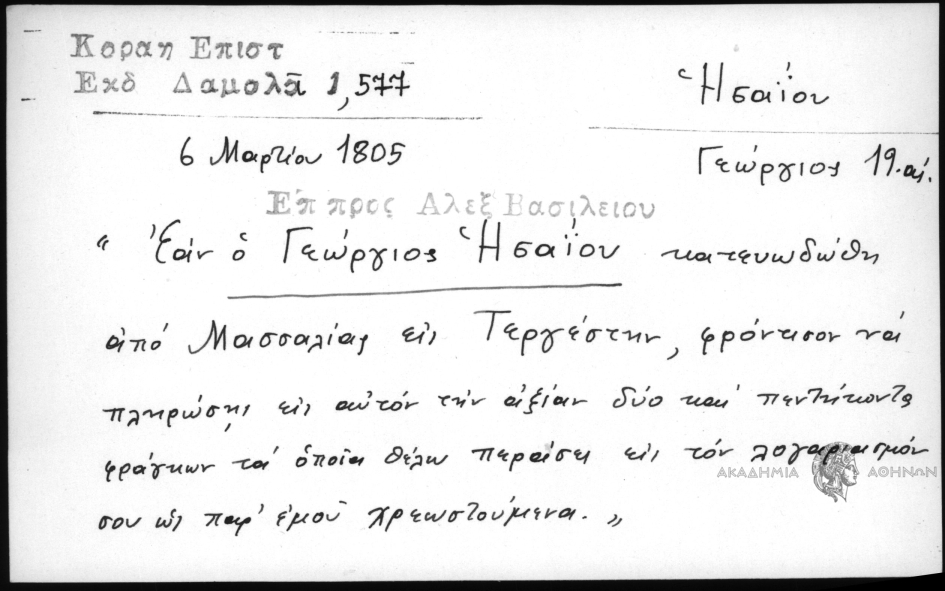 Κοραη Επιστ
Εκδ Δαμαλᾶ 1,577
Ἡσαΐου
6 Μαρτίου 1805
Γεώργιος 19. αἰ.
Επ προς Αλεξ Βασιλειου
"Ἐάν ὁ Γεώργιος Ἡσαΐου κατευωδώθη
ἀπό Μασσαλίας εἰς Τεργέστην, φρόντισον νά
πληρώσῃς εἰς αὐτόν τήν ἀξίαν δύο καί πεντήκοντα
φράγκων τά ὁποῖα θέλω περάσει εἰς τόν λογαριασμόν
σου ὡς παρ' ἐμοῦ χρεωστούμενα."
ΑΚΑΔΗΜΙΑ ΑΘΗΝΩΝ